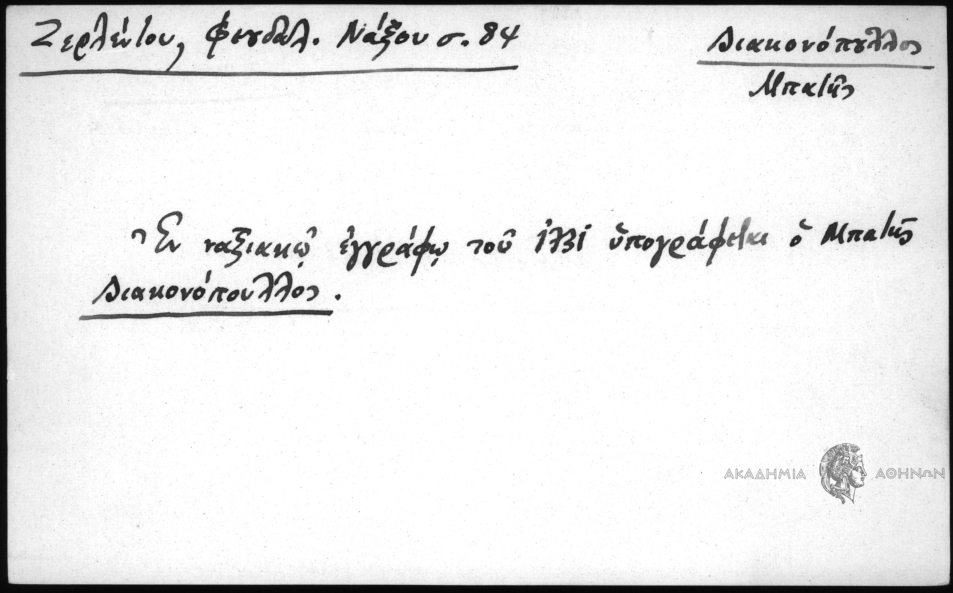 Ζερλέντου, Φεουδαλ. Νάξου σ. 84
Διακονόπουλλος
Μπατῆς
Ἐν ναξιακῷ ἐγγράφῳ τοῦ 1731 ὑπογράφεται ὁ Μπατῆς
Διακονόπουλλος.
ΑΚΑΔΗΜΙΑ ΑΘΗΝΩΝ